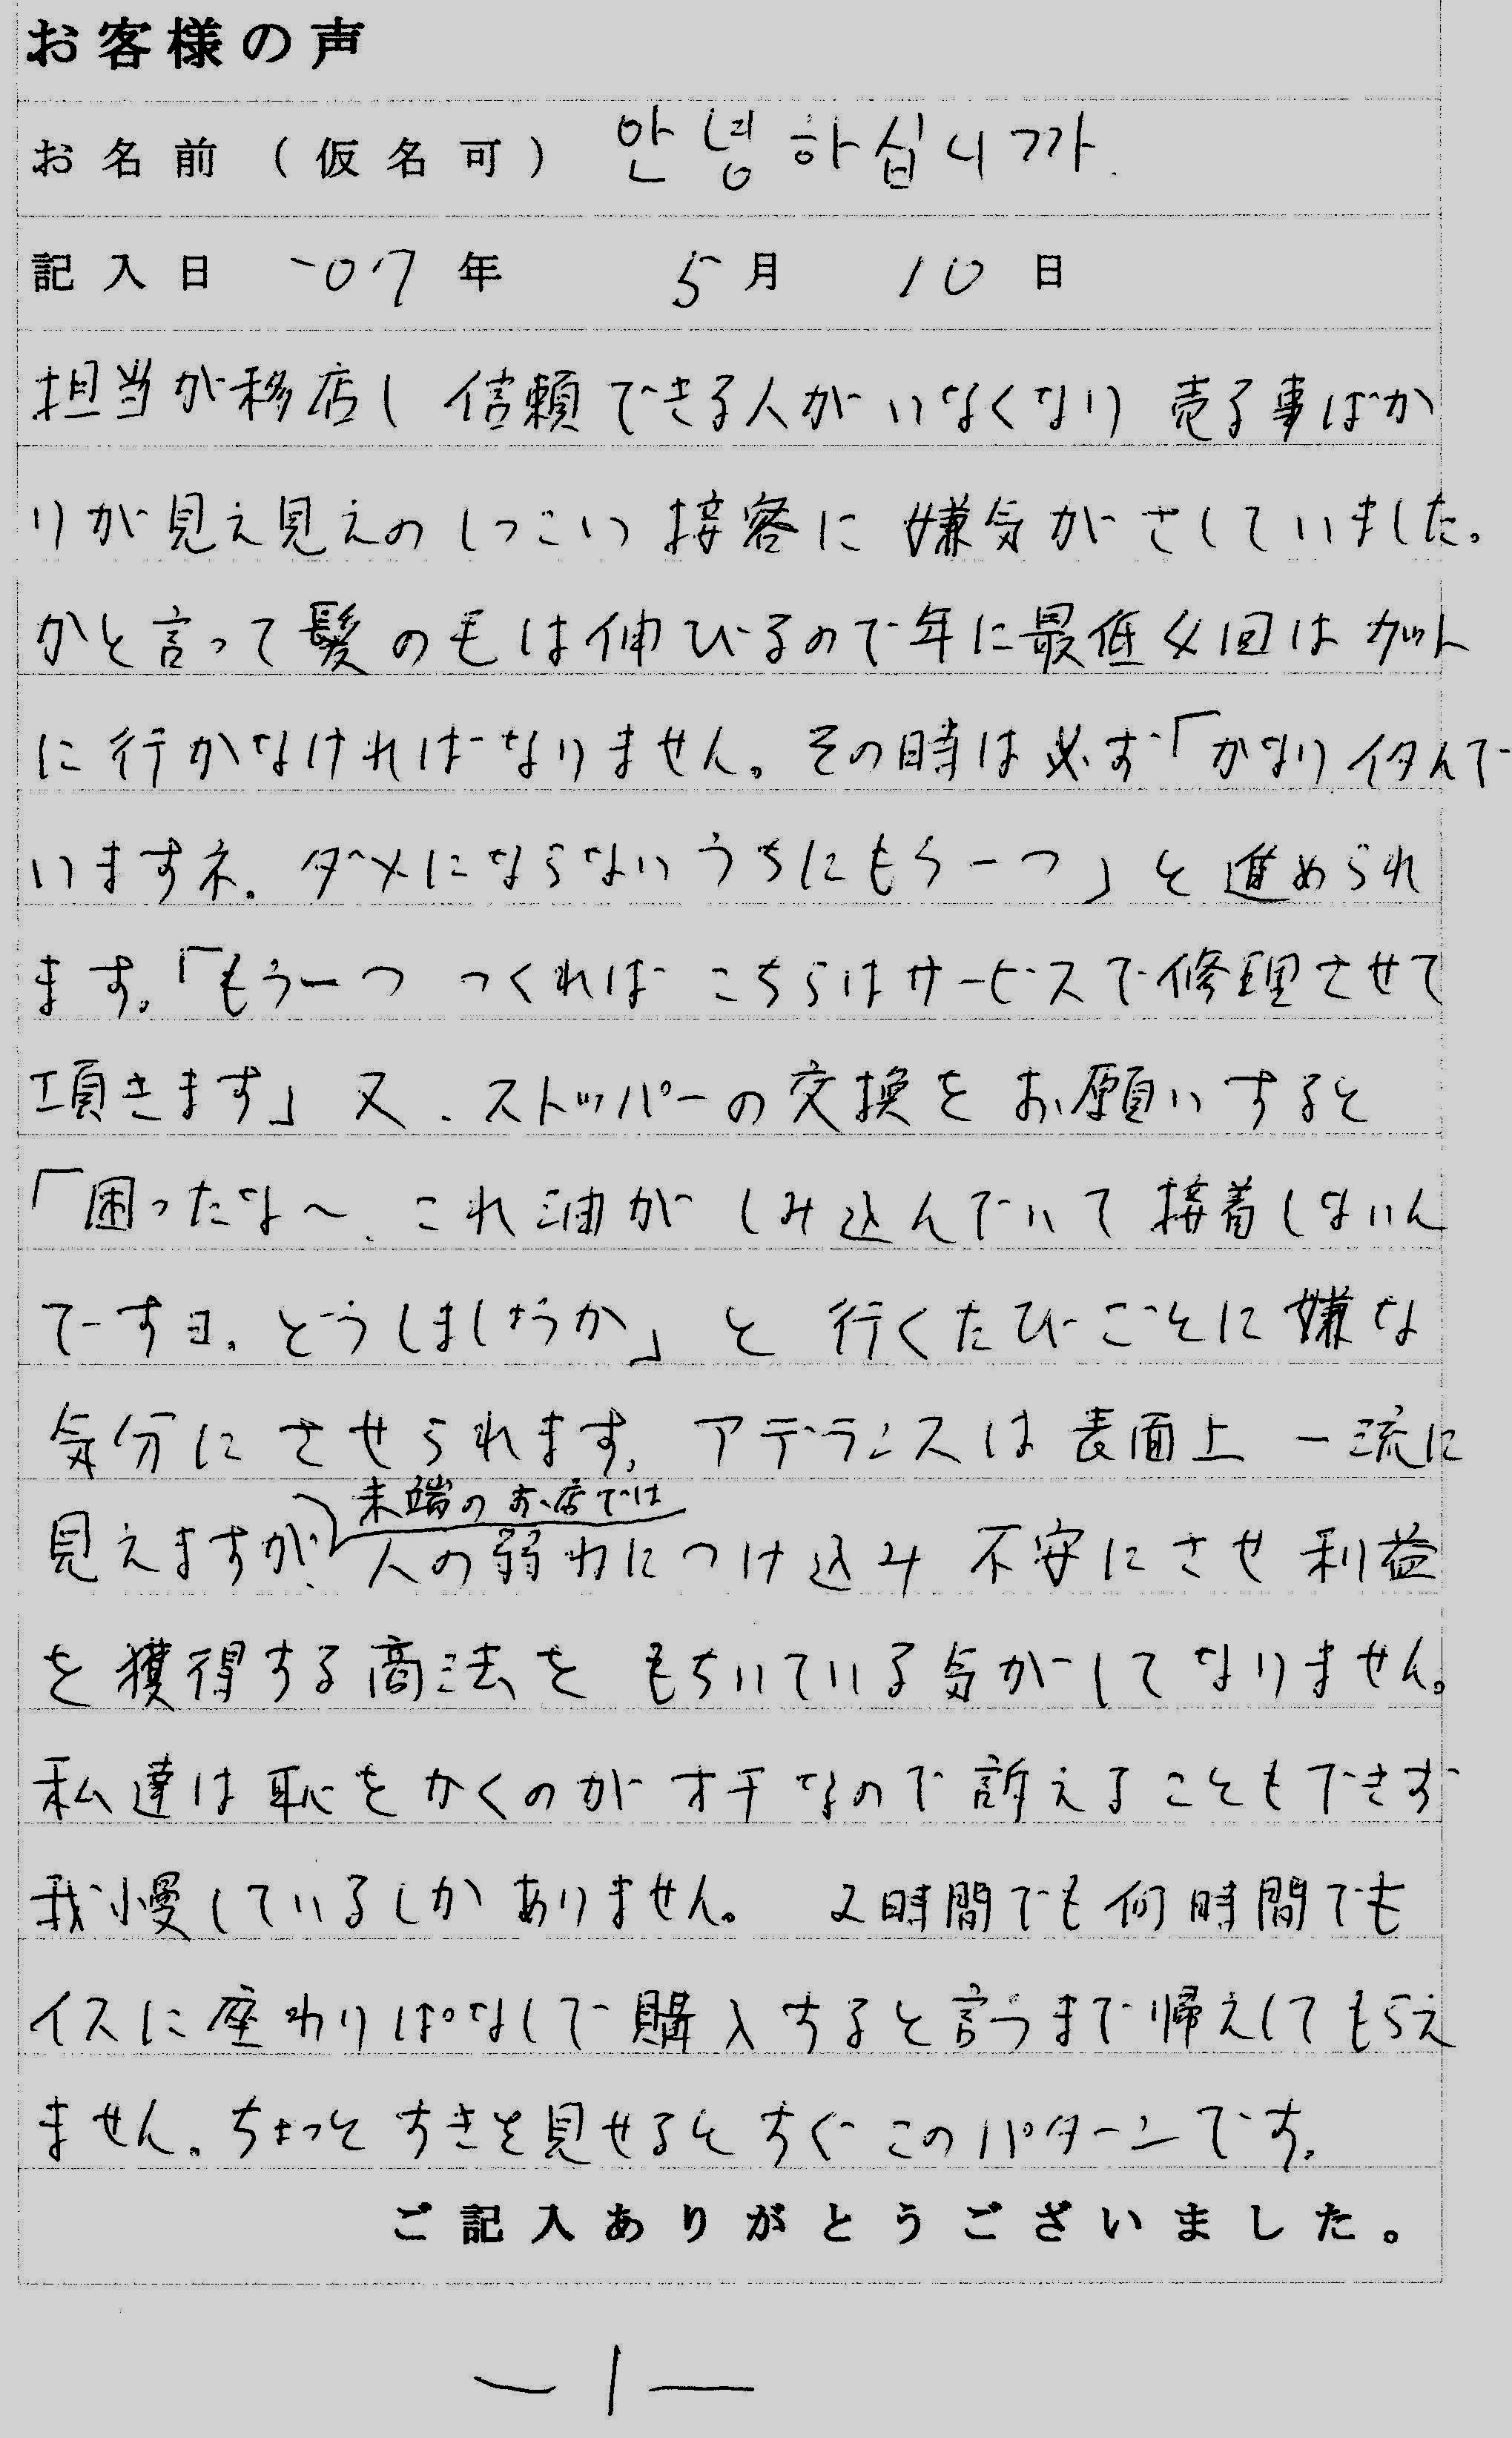 お客様の声
お名前（仮名可） 안녕하십니까.
記入日 '07年 5月 10日
担当が移店し 信頼できる人がいなくなり 売る事ばか
りが見え見えのしつこい接客に嫌気がさしていました。
かと言って髪の毛は伸びるので年に最低4回はカット
に行かなければなりません。その時は必ず「かなりイタんで
いますネ。ダメにならないうちにもう一つ」と進められ
ます。「もう一つ つくれば こちらはサービスで修理させて
頂きます」又、ストッパーの交換をお願いすると
「困ったな〜、これ油がしみ込んでいて接着しないん
ですヨ。どうしましょうか」と 行くたびごとに嫌な
気分にさせられます。アデランスは表面上 一流に
末端のお店では
見えますが、人の弱みにつけ込み 不安にさせ利益
を獲得する商法を もちいている気がしてなりません。
私達は恥をかくのがオチなので訴えることもできず
我慢しているしかありません。 2時間でも何時間でも
イスに座わりぱなしで購入すると言うまで帰えしてもらえ
ません。ちょっとすきを見せるとすぐこのパターンです。
ご記入ありがとうございました。
—1—